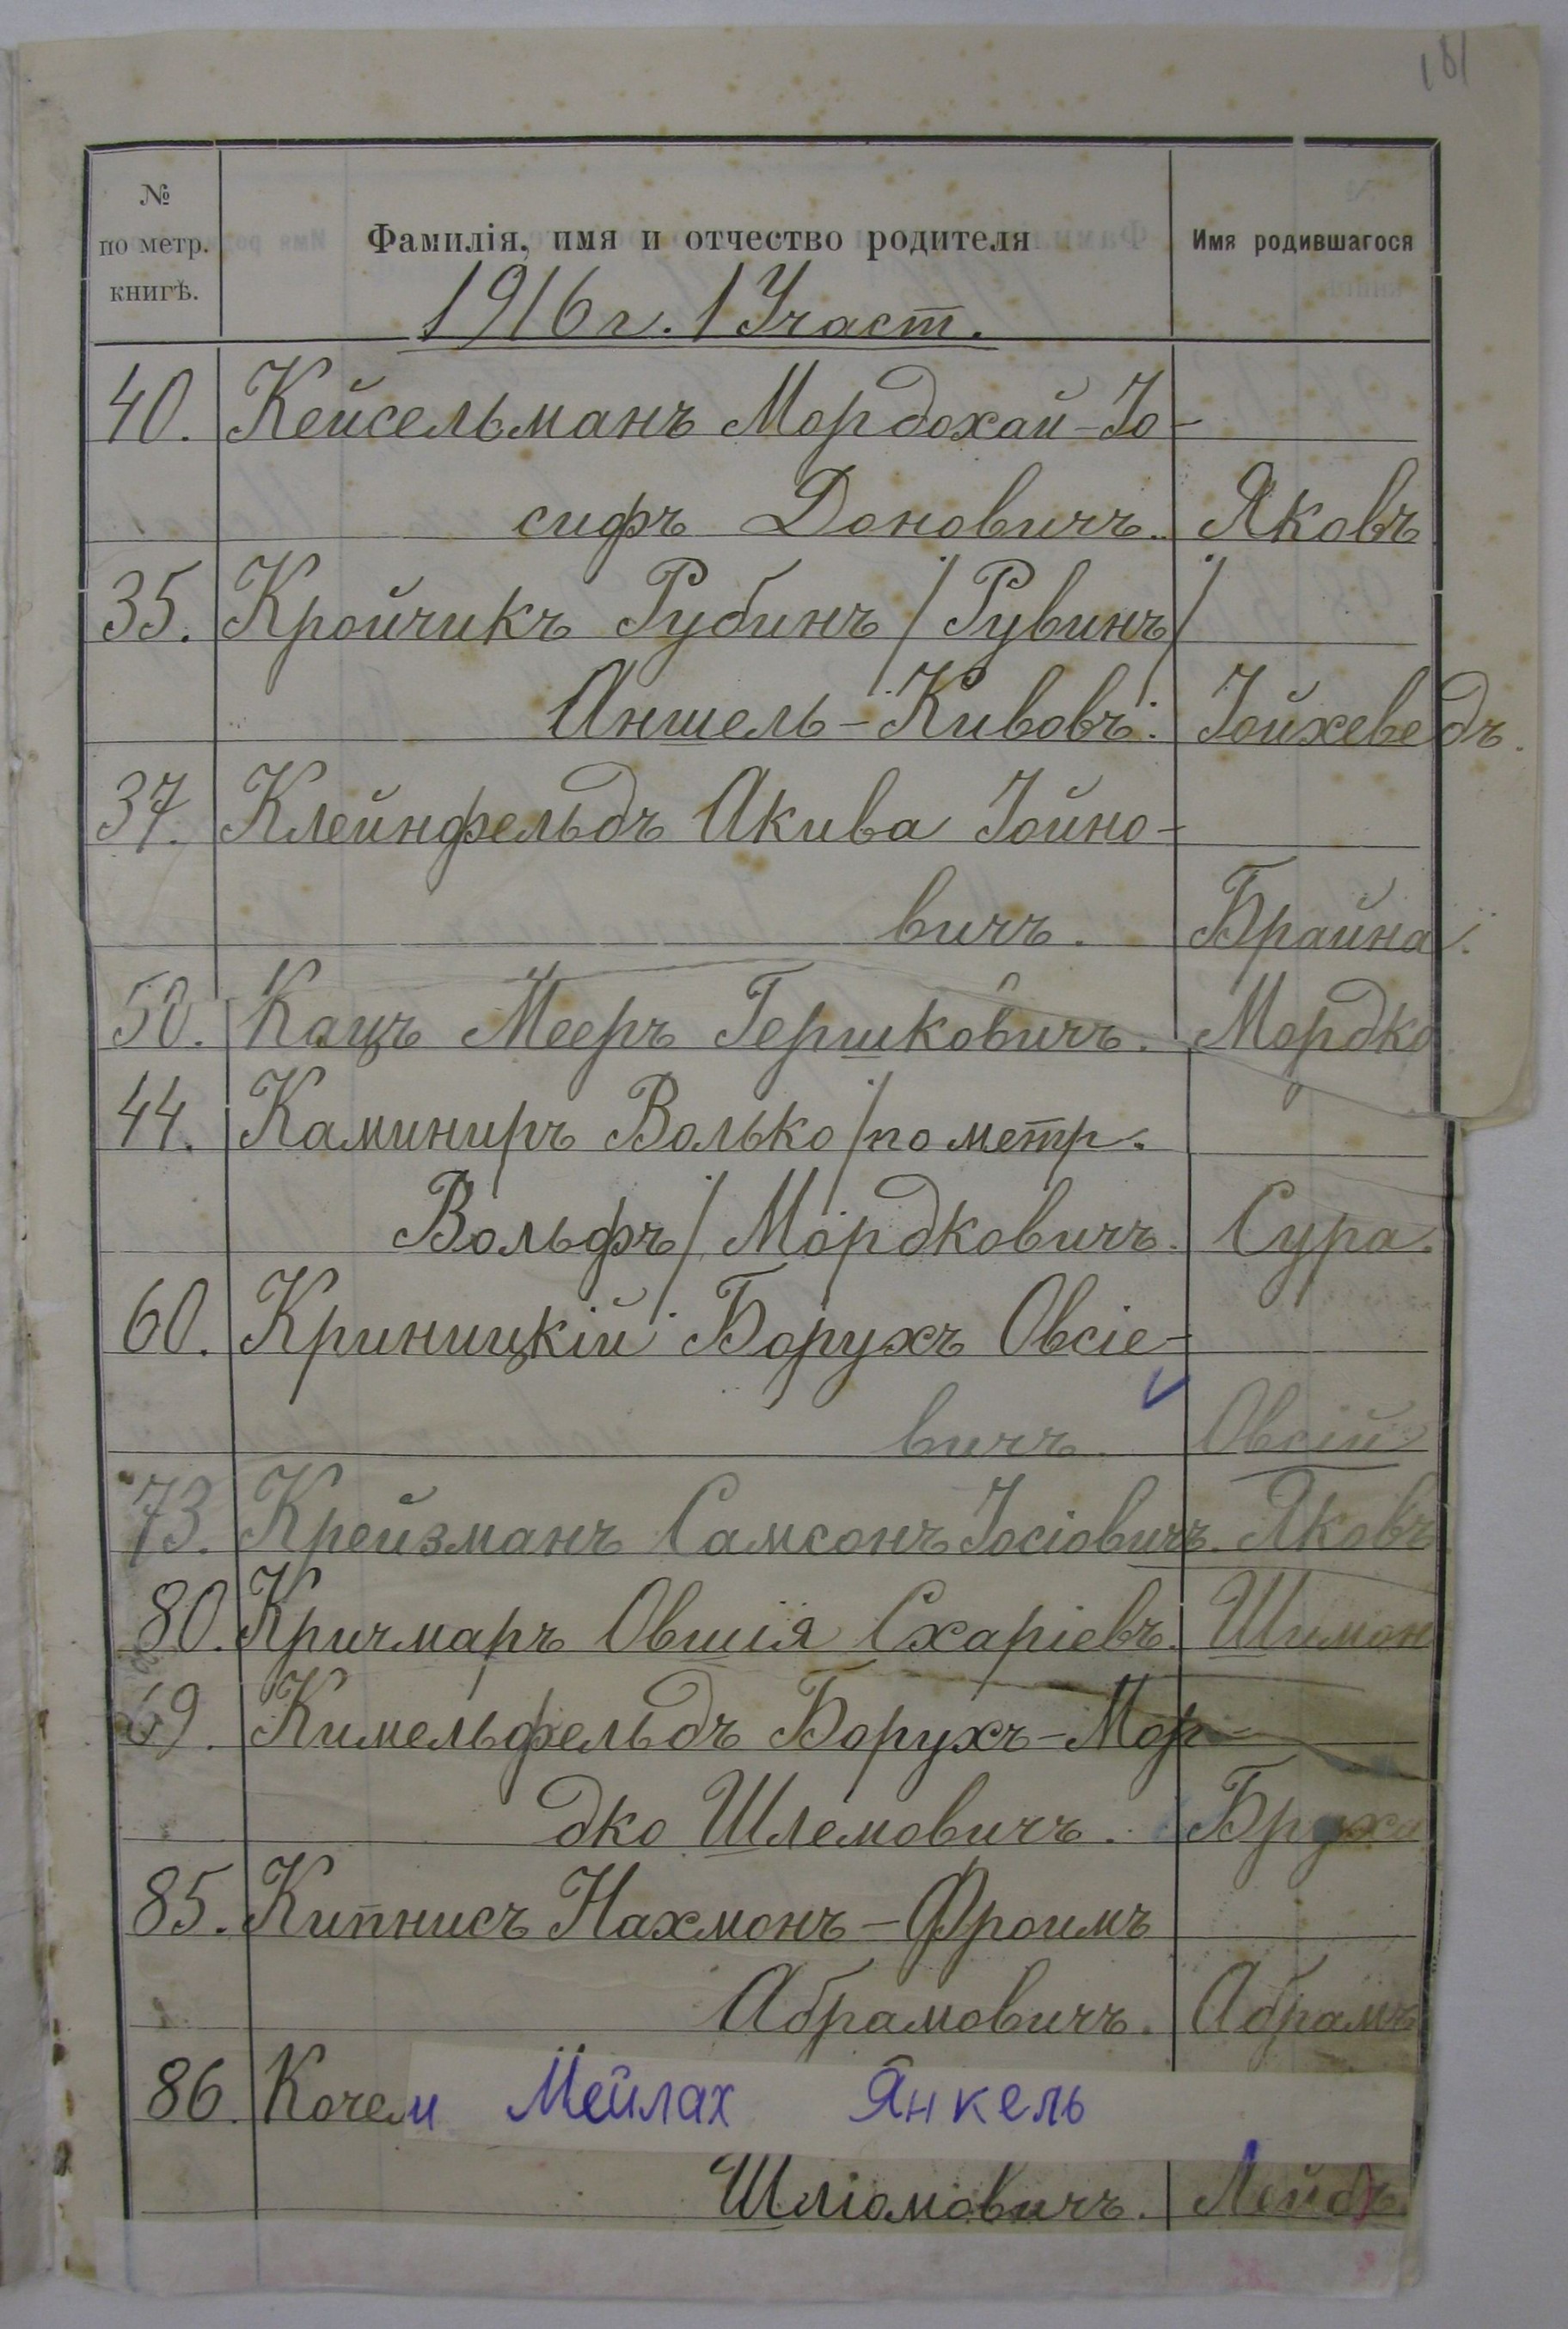 181
№ по метр. книгѣ.
Фамилія, имя и отчество родителя
Имя родившагося
1916 г. 1 Участ.
40. Кейсельманъ Мордохай-Іо-
сифъ Доновичъ. Яковъ
35. Кройчикъ Рубинъ /Рувинъ/
Аншель-Кивовъ. Іойхеведъ.
37. Клейнфельдъ Акива Іойно-
вичъ. Брайна.
50. Кацъ Мееръ Гершковичъ. Мордко
44. Каминиръ Волько /по метр.
Вольфъ/ Мордковичъ. Сура.
60. Криницкій Борухъ Овсіе-
вичъ. Овсій
73. Крейзманъ Самсонъ Іосіовичъ. Яковъ
80. Кричмаръ Овшія Схаріевъ. Шимон
69. Кимельфельдъ Борухъ-Мор-
дко Шлемовичъ. Бруха
85. Кипнисъ Нахмонъ-Фроимъ
Абрамовичъ. Абрамъ
86. Кочем Мейлах Янкель
Шліомовичъ. Лейбъ.